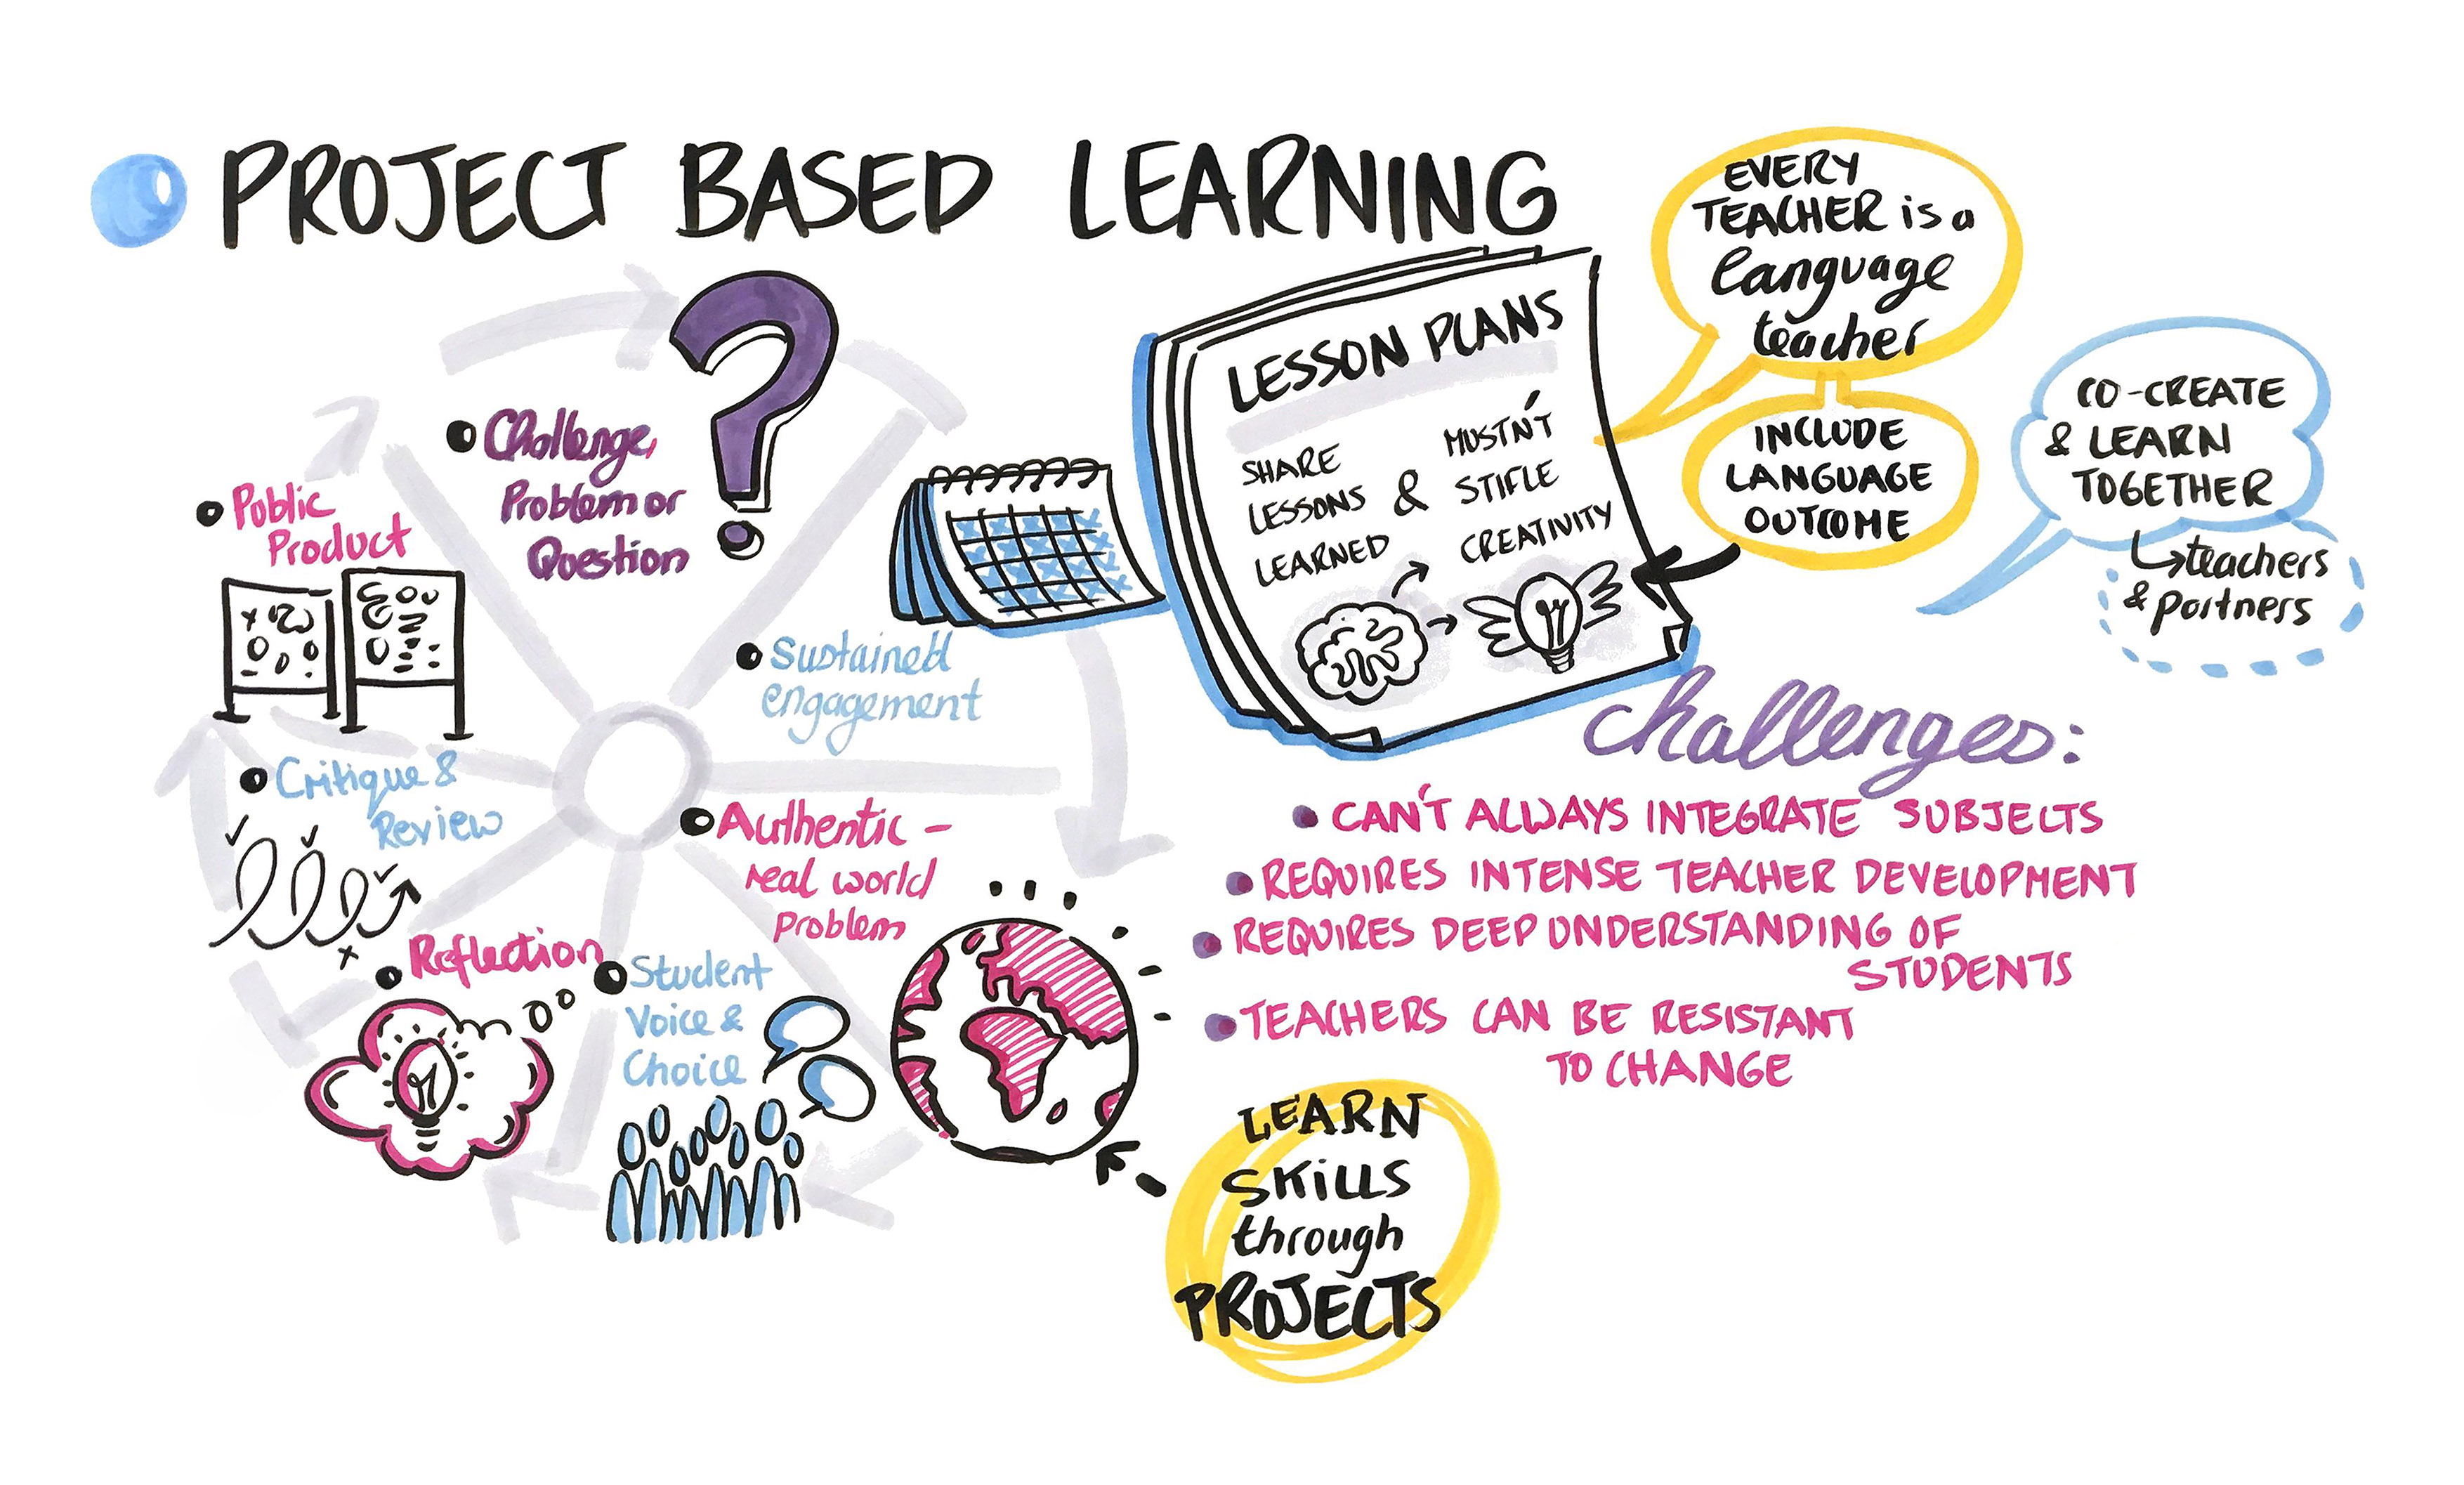 PROJECT BASED LEARNING
Challenge,
Problem or
Question
Sustained
engagement
Authentic -
real world
Problem
Student
Voice &
Choice
Reflection
Critique &
Review
Public
Product
LESSON PLANS
SHARE
LESSONS
LEARNED
&
MUSTN'T
STIFLE
CREATIVITY
EVERY
TEACHER is a
language
teacher
INCLUDE
LANGUAGE
OUTCOME
CO-CREATE
& LEARN
TOGETHER
teachers
& partners
Challenges:
CAN'T ALWAYS INTEGRATE SUBJECTS
REQUIRES INTENSE TEACHER DEVELOPMENT
REQUIRES DEEP UNDERSTANDING OF
STUDENTS
TEACHERS CAN BE RESISTANT
TO CHANGE
LEARN
SKILLS
through
PROJECTS